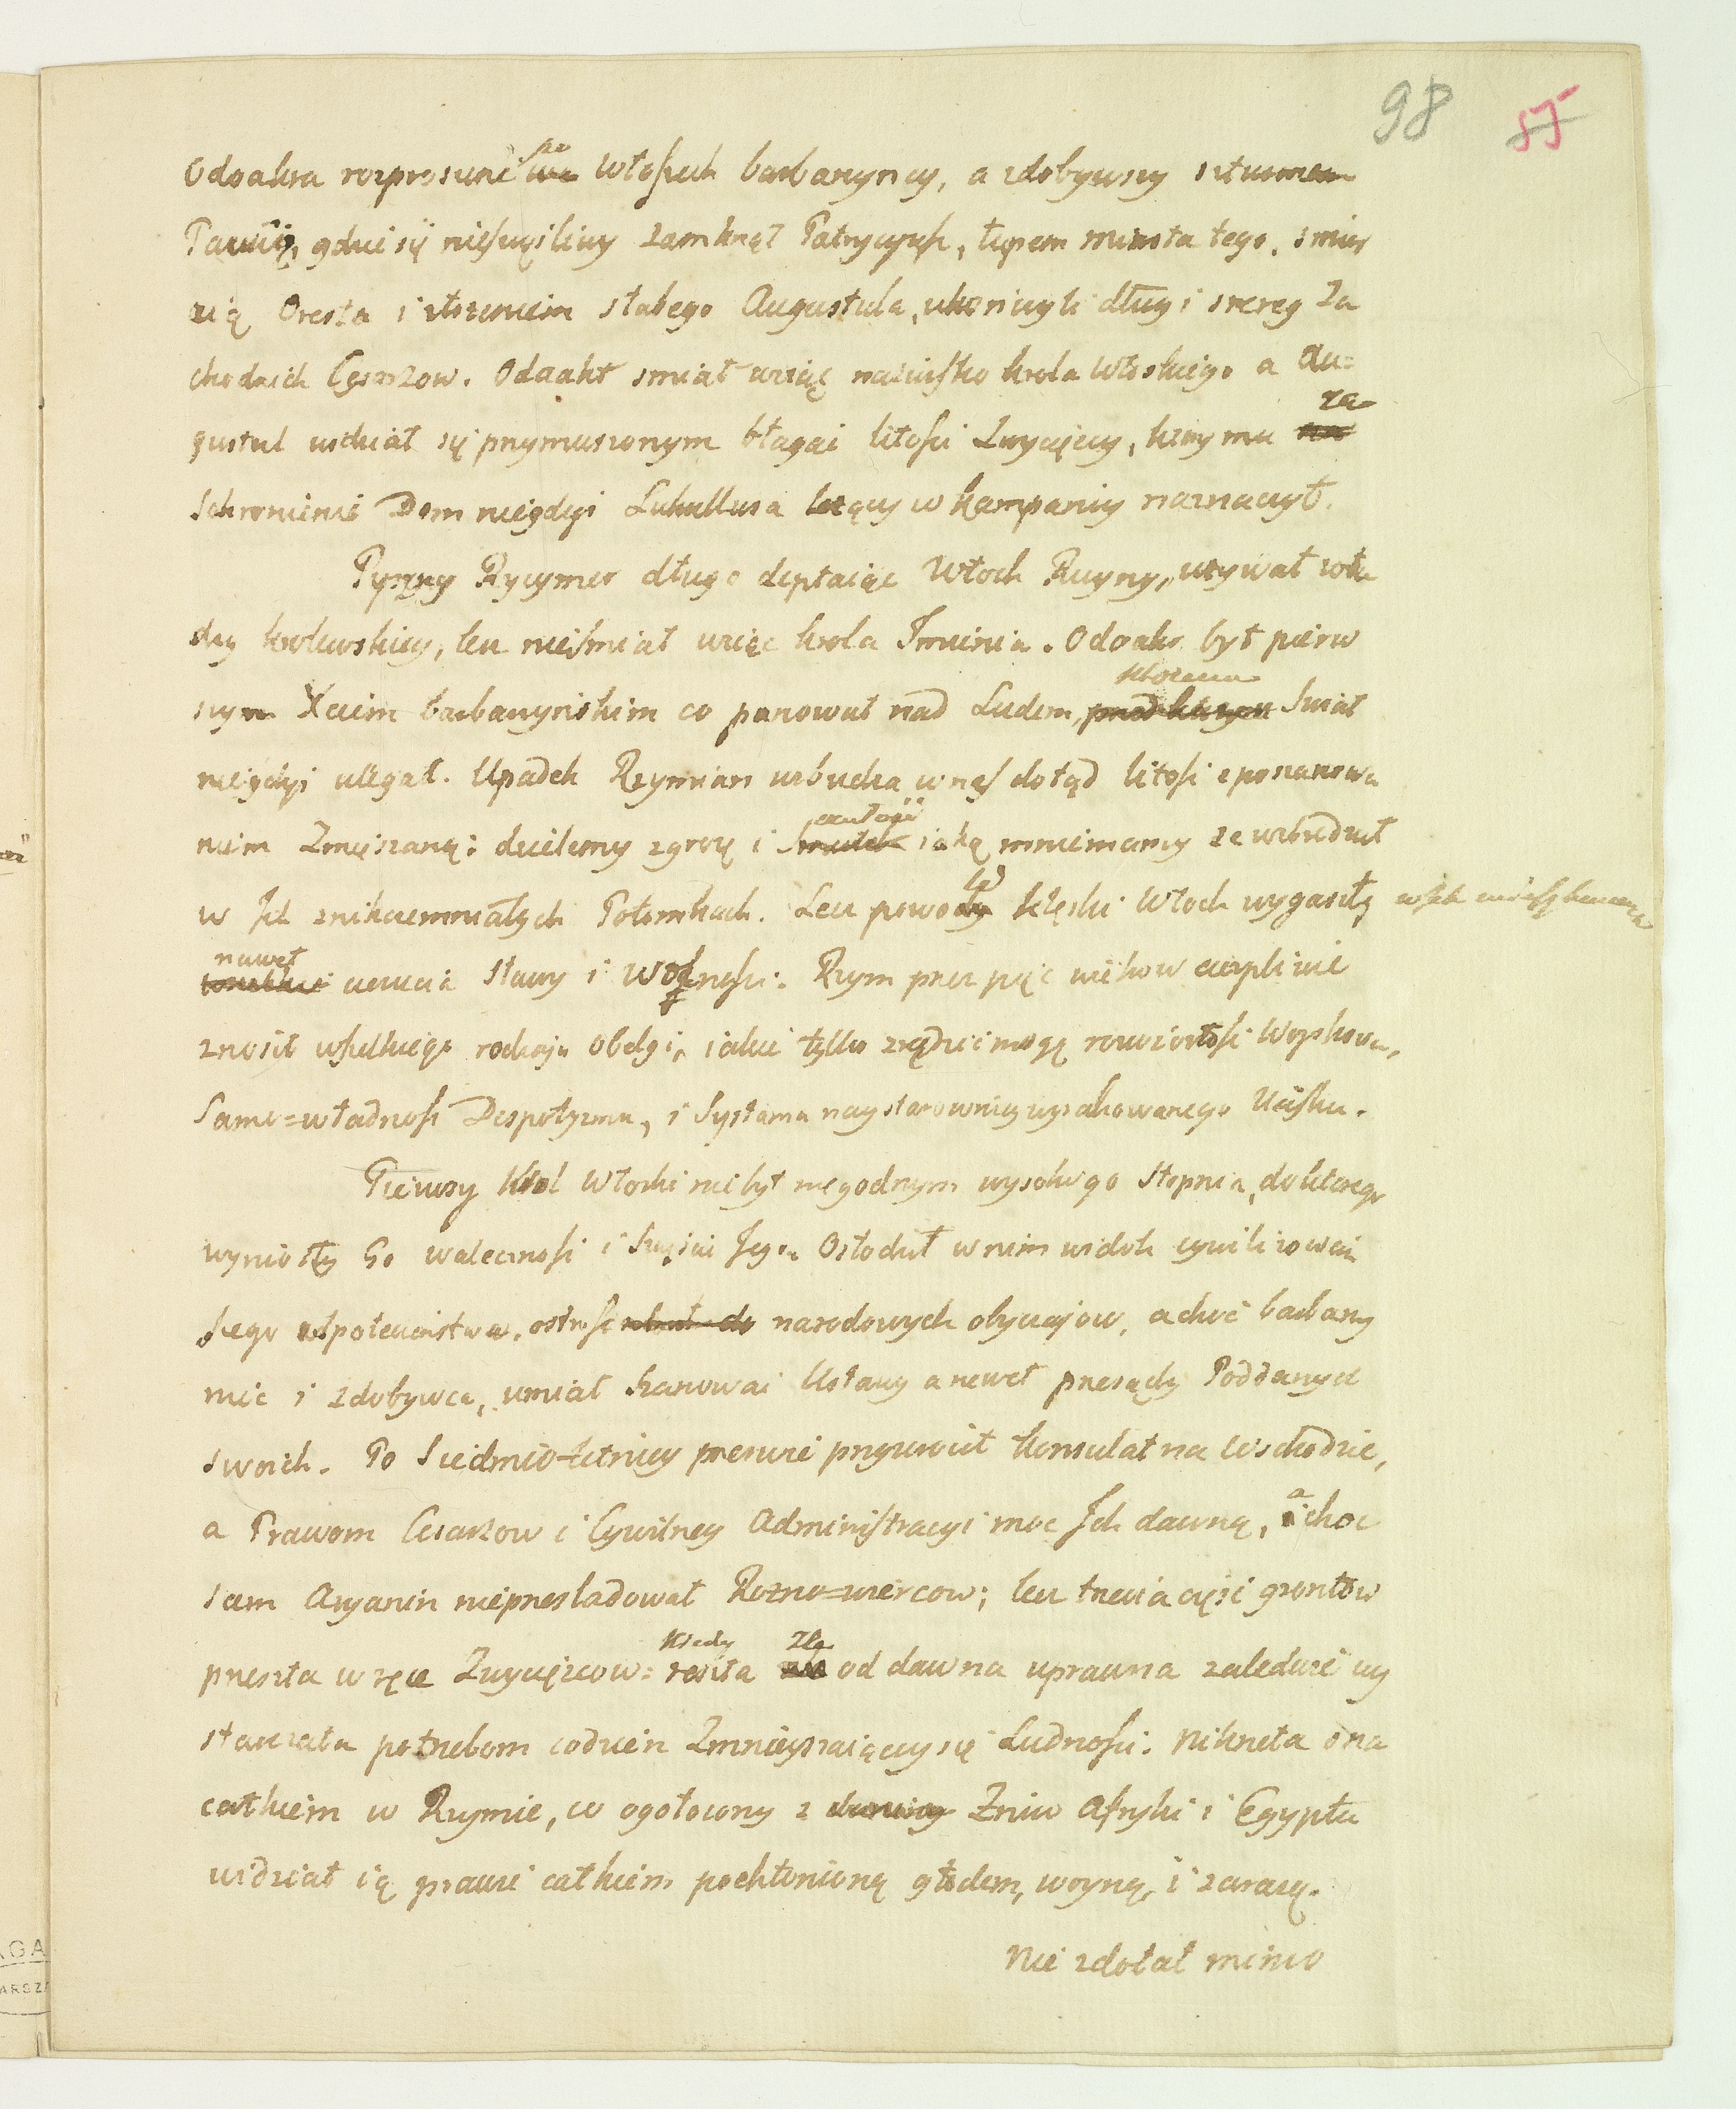 98 55
Odoakra rozproszeni po Włoszech barbarzyńcy, a zdobywszy szturmem
Pawiię, gdzie się nieszczęśliwy zamknął Patrycyusz, łupem miasta tego, śmier
cią Oresta i złożeniem słabego Augustula, ukończyli długi szereg Za
chodnich Cesarzow. Odoakr śmiał wziąć nazwisko krola Włoskiego a Au=
gustul widział się przymuszonym błagać litości Zwycięzcy, ktory mu za
schronienie Dom niegdyś Lukullusa leżący w Kampanij naznaczył.
Pyszny Rycymer długo deptaiąc Włoch Ruyny, używał wła
dzy krolewskiey, lecz nieśmiał wziąć krola Imienia. Odoakr był pierw
szym Xciem barbarzyńskim co panował nad Ludem, ktoremu świat
niegdyś ulegał. Upadek Rzymian wzbudza w nas dotąd litość z poszanowa
niem Zmięszaną; dzielemy zgrozę i iaką mniemamy że wzbudził
w Ich znikczemniałych Potomkach. Lecz powody klęski Włoch wygasiły
nawet uczucia sławy i Wolności. Rzym przez pięć wiekow cierpliwie
znosił wszelkiego rodzaju obelgi, iakie tylko zrządzić mogą rozwiozłość Woyskowa,
Samo=władność Despotyzmu, i Systama naystarowniey wyrachowanego Ucisku.
Pierwszy Krol Włoski nie był niegodnym wysokiego Stopnia, do ktorego
wyniosły Go waleczność i Szczęście Jego. Osłodził w nim widok cywilizowań
szego społeczeństwa, ostrość narodowych obyczajow, a choć barbarzy
niec i zdobywca, umiał szanować Ustawy a nawet przesądy Poddanych
swoich. Po Siedmio-letniey przerwie przywrocił Konsulat na Wschodzie,
a Prawom Cesarzow i Cywilney Administracyi moc Ich dawną, a choc
sam Aryanin nieprześladował Rozno=wiercow; lecz trzecia część grontow
przeszła w ręce Zwycięzcow: kiedy reszta źle od dawna uprawna zaledwie wy
starczała potrzebom codzien Zmnieyszaiącey się Ludności. Niknęła ona
całkiem w Rzymie, co ogołocony z Żniw Afryki i Egyptu
widział ią prawie całkiem pochłonioną głodem, woyną, i zarazą.
Nie zdołał mimo